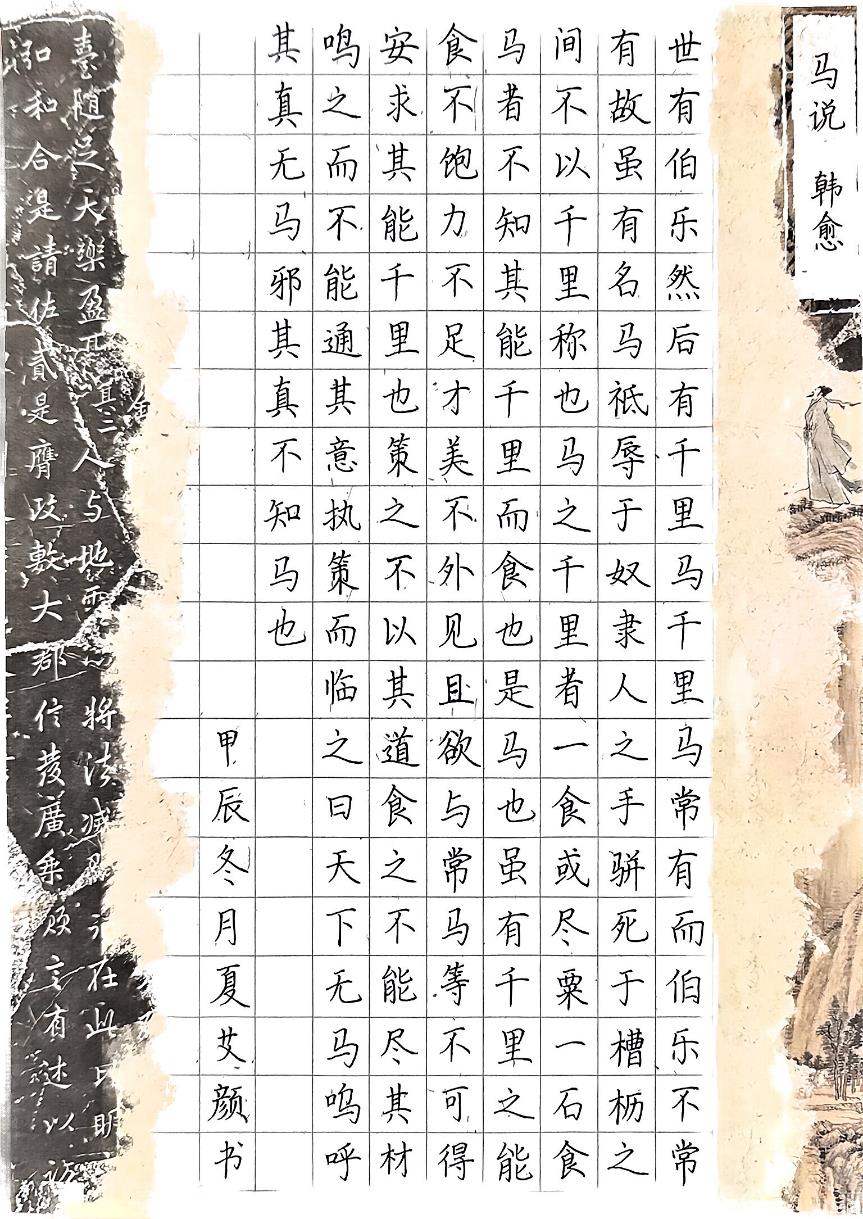 马说 韩愈
世有伯乐然后有千里马千里马常有而伯乐不常
有故虽有名马祗辱于奴隶人之手骈死于槽枥之
间不以千里称也马之千里者一食或尽粟一石食
马者不知其能千里而食也是马也虽有千里之能
食不饱力不足才美不外见且欲与常马等不可得
安求其能千里也策之不以其道食之不能尽其材
鸣之而不能通其意执策而临之曰天下无马呜呼
其真无马邪其真不知马也
甲辰冬月夏艾颜书
其三
臺随足天樂盈人与地將法减在此以明
和合是請佐貳是膺政數大郡信茂廣乘须言有述以